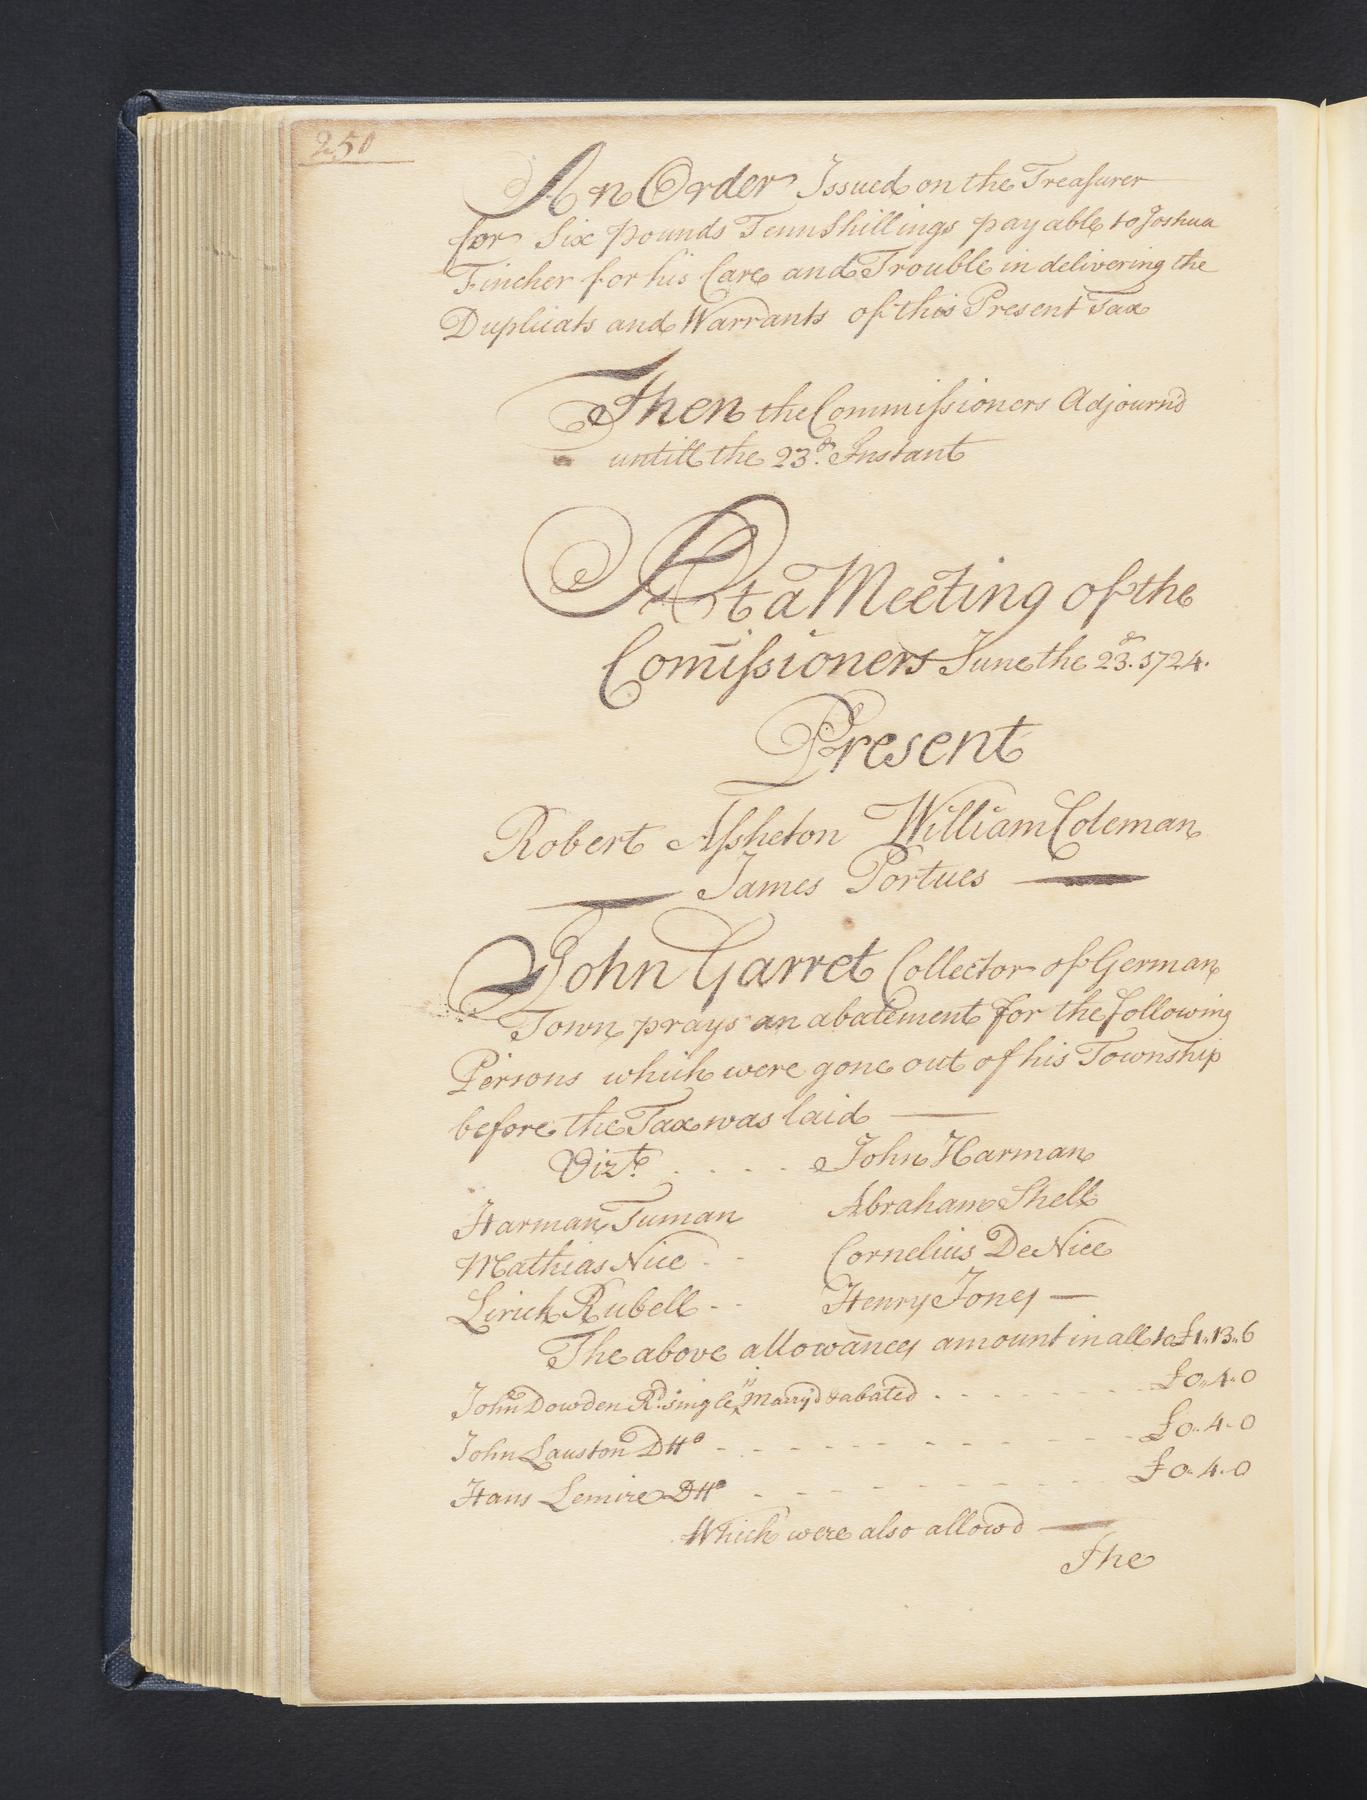 250
An Order Issued on the Treasurer
for Six pounds Tenn Shillings payable to Joshua
Fincher for his Care and Trouble in delivering the
Duplicats and Warrants of this Present Tax
Then the Commissioners Adjourn'd
untill the 23.d Instant
At a Meeting of the
Com̄issioners June the 23.d 1724.
Present
Robert Assheton William Coleman
James Portues
John Garret Collector of German
Town prays an abatement for the following
Persons which were gone out of his Township
before the Tax was laid
Vizt. . . . . John Harman
Harman Tuman Abraham Shell
Mathias Nice - - Cornelius De Nice
Lirich Rubell - - Henry Jones —
The above allowances amount in all to £1..13..6
John Dowden Rd. single ^ Marry'd & abated - - - - - £0..4..0
John Lauston Ditto - - - - - £0..4..0
Hans Lemire Ditto - - - - - £0..4..0
Which were also allowd —
The